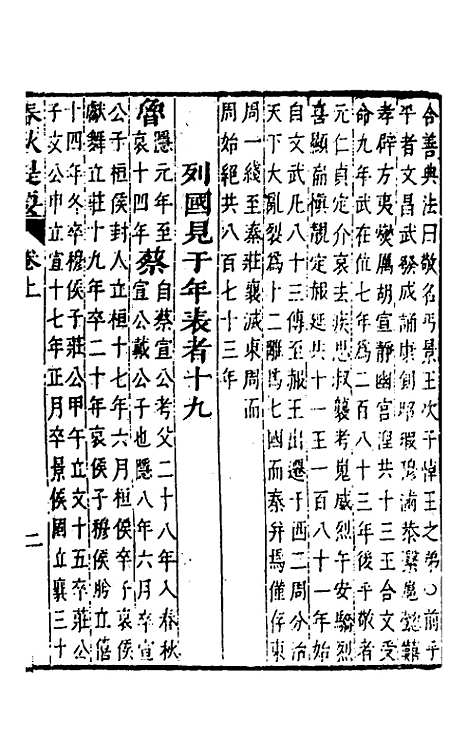 合善典法曰敬名丐景王次子悼王之弟〇前乎
平者文昌武發成誦康釗昭瑕穆滿恭繄懿囏
孝辟方夷燮厲胡宣靜幽宮湼共十三王合文受
命九年武在位七年為二百八十三年後乎敬者
元仁貞定介哀去疾思叔襲考嵬威烈午安驕烈
喜顯扁慎靚定赧延共十一王一百八十一年始
自文武凡八百七十三傳至赧王出遷于西二周分治
天下大亂裂爲十二離爲七國而秦弁焉僅存東
周一綫至秦莊襄滅東周而
周始絕共八百七十三年
列國見于年表者十九
魯隱元年至哀十四年 蔡自蔡宣公考父二十八年入春秋宣公戴公子也隱八年六月卒宣
公子桓侯封人立桓十七年六月桓侯卒子哀侯
獻舞立莊十九年卒二十年哀侯子穆侯肸立僖
十四年冬卒穆侯子莊公甲午立文十五卒莊公
子文公申立宣十七年正月卒景侯固立襄三十
春秋提要 卷上 二